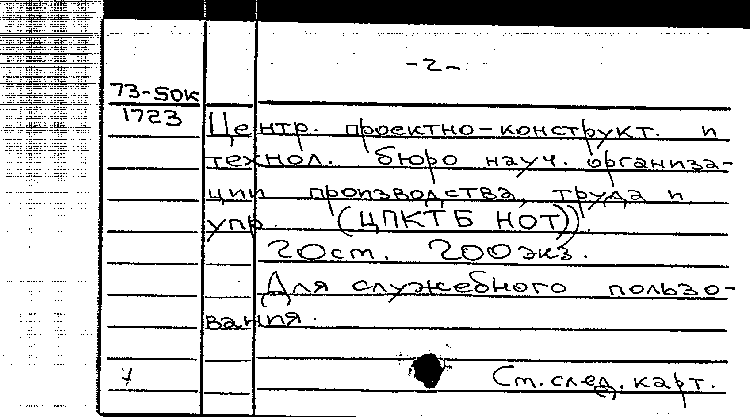 -2-
73-50к
1723
Центр. проектно-конструкт. и
технол. бюро науч. организа-
ции производства, труда и
упр. (ЦПКТБ НОТ))
20ст. 200экз.
Для служебного пользо-
вания.
Ст. след. карт.